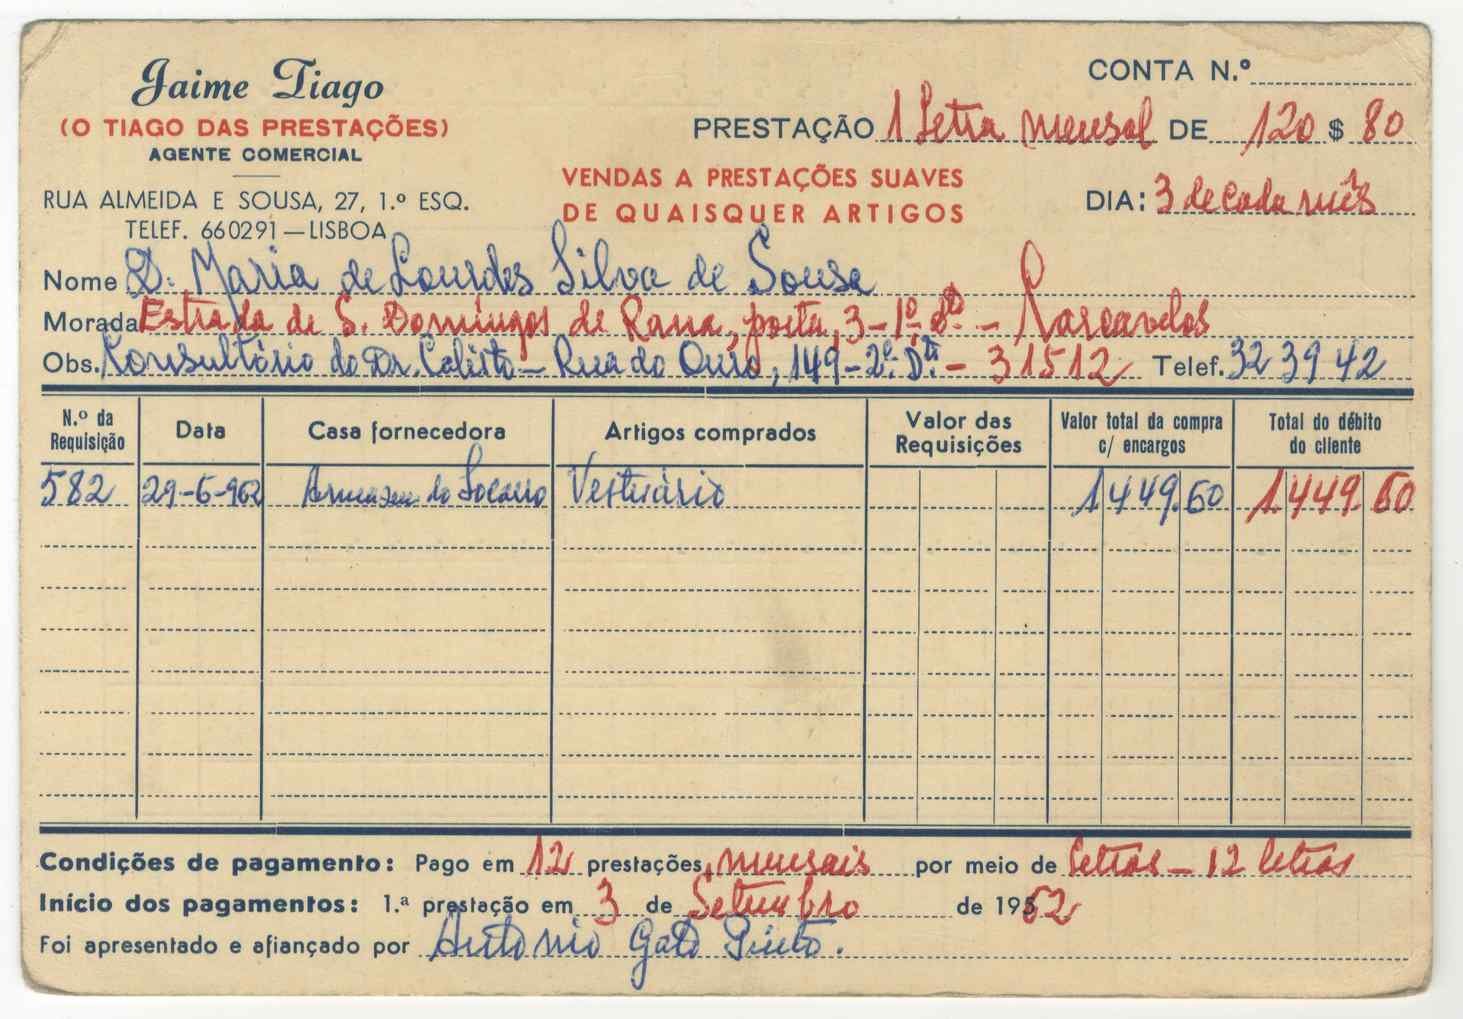 Jaime Tiago
(O TIAGO DAS PRESTAÇÕES)
AGENTE COMERCIAL
RUA ALMEIDA E SOUSA, 27, 1.º ESQ.
TELEF. 660291 — LISBOA
VENDAS A PRESTAÇÕES SUAVES
DE QUAISQUER ARTIGOS
CONTA N.º
PRESTAÇÃO 1 Letra mensal DE 120 $ 80
DIA: 3 de cada mês
Nome D. Maria de Lourdes Silva de Sousa
Morada Estrada de S. Domingos de Rana, porta, 3 - 1º dtº - Carcavelos
Obs. Consultório do Dr. Calisto - Rua do Ouro, 149 - 2º. Dtº. - 31512 Telef. 32 39 42
N.º da Requisição Data Casa fornecedora Artigos comprados Valor das Requisições Valor total da compra c/ encargos Total do débito do cliente
582 29-6-962 Armazem do Socorro Vestuário 1.449.60 1.449.60
Condições de pagamento: Pago em 12 prestações, mensais por meio de letras - 12 letras
Início dos pagamentos: 1.ª prestação em 3 de Setembro de 1962
Foi apresentado e afiançado por Antonio Gato Pinto.